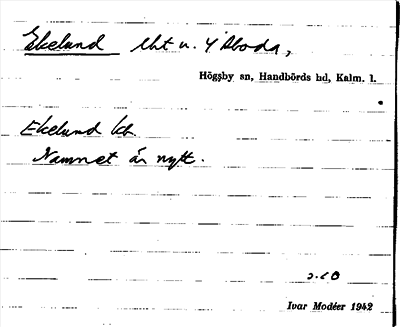 Ekelund lht u. Y Aboda,
Högsby sn, Handbörds hd, Kalm. l.
Ekelund kt.
Namnet är nytt.
Ivar Modéer 1942